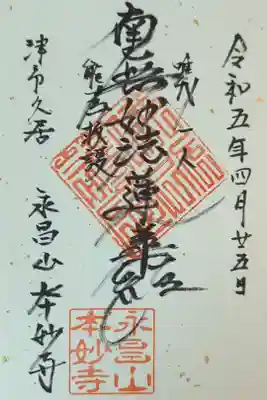 令和五年四月廿五日
唯我一人
南無妙法蓮華経
能為救護
津市久居 永昌山 本妙寺
永昌山
本妙寺